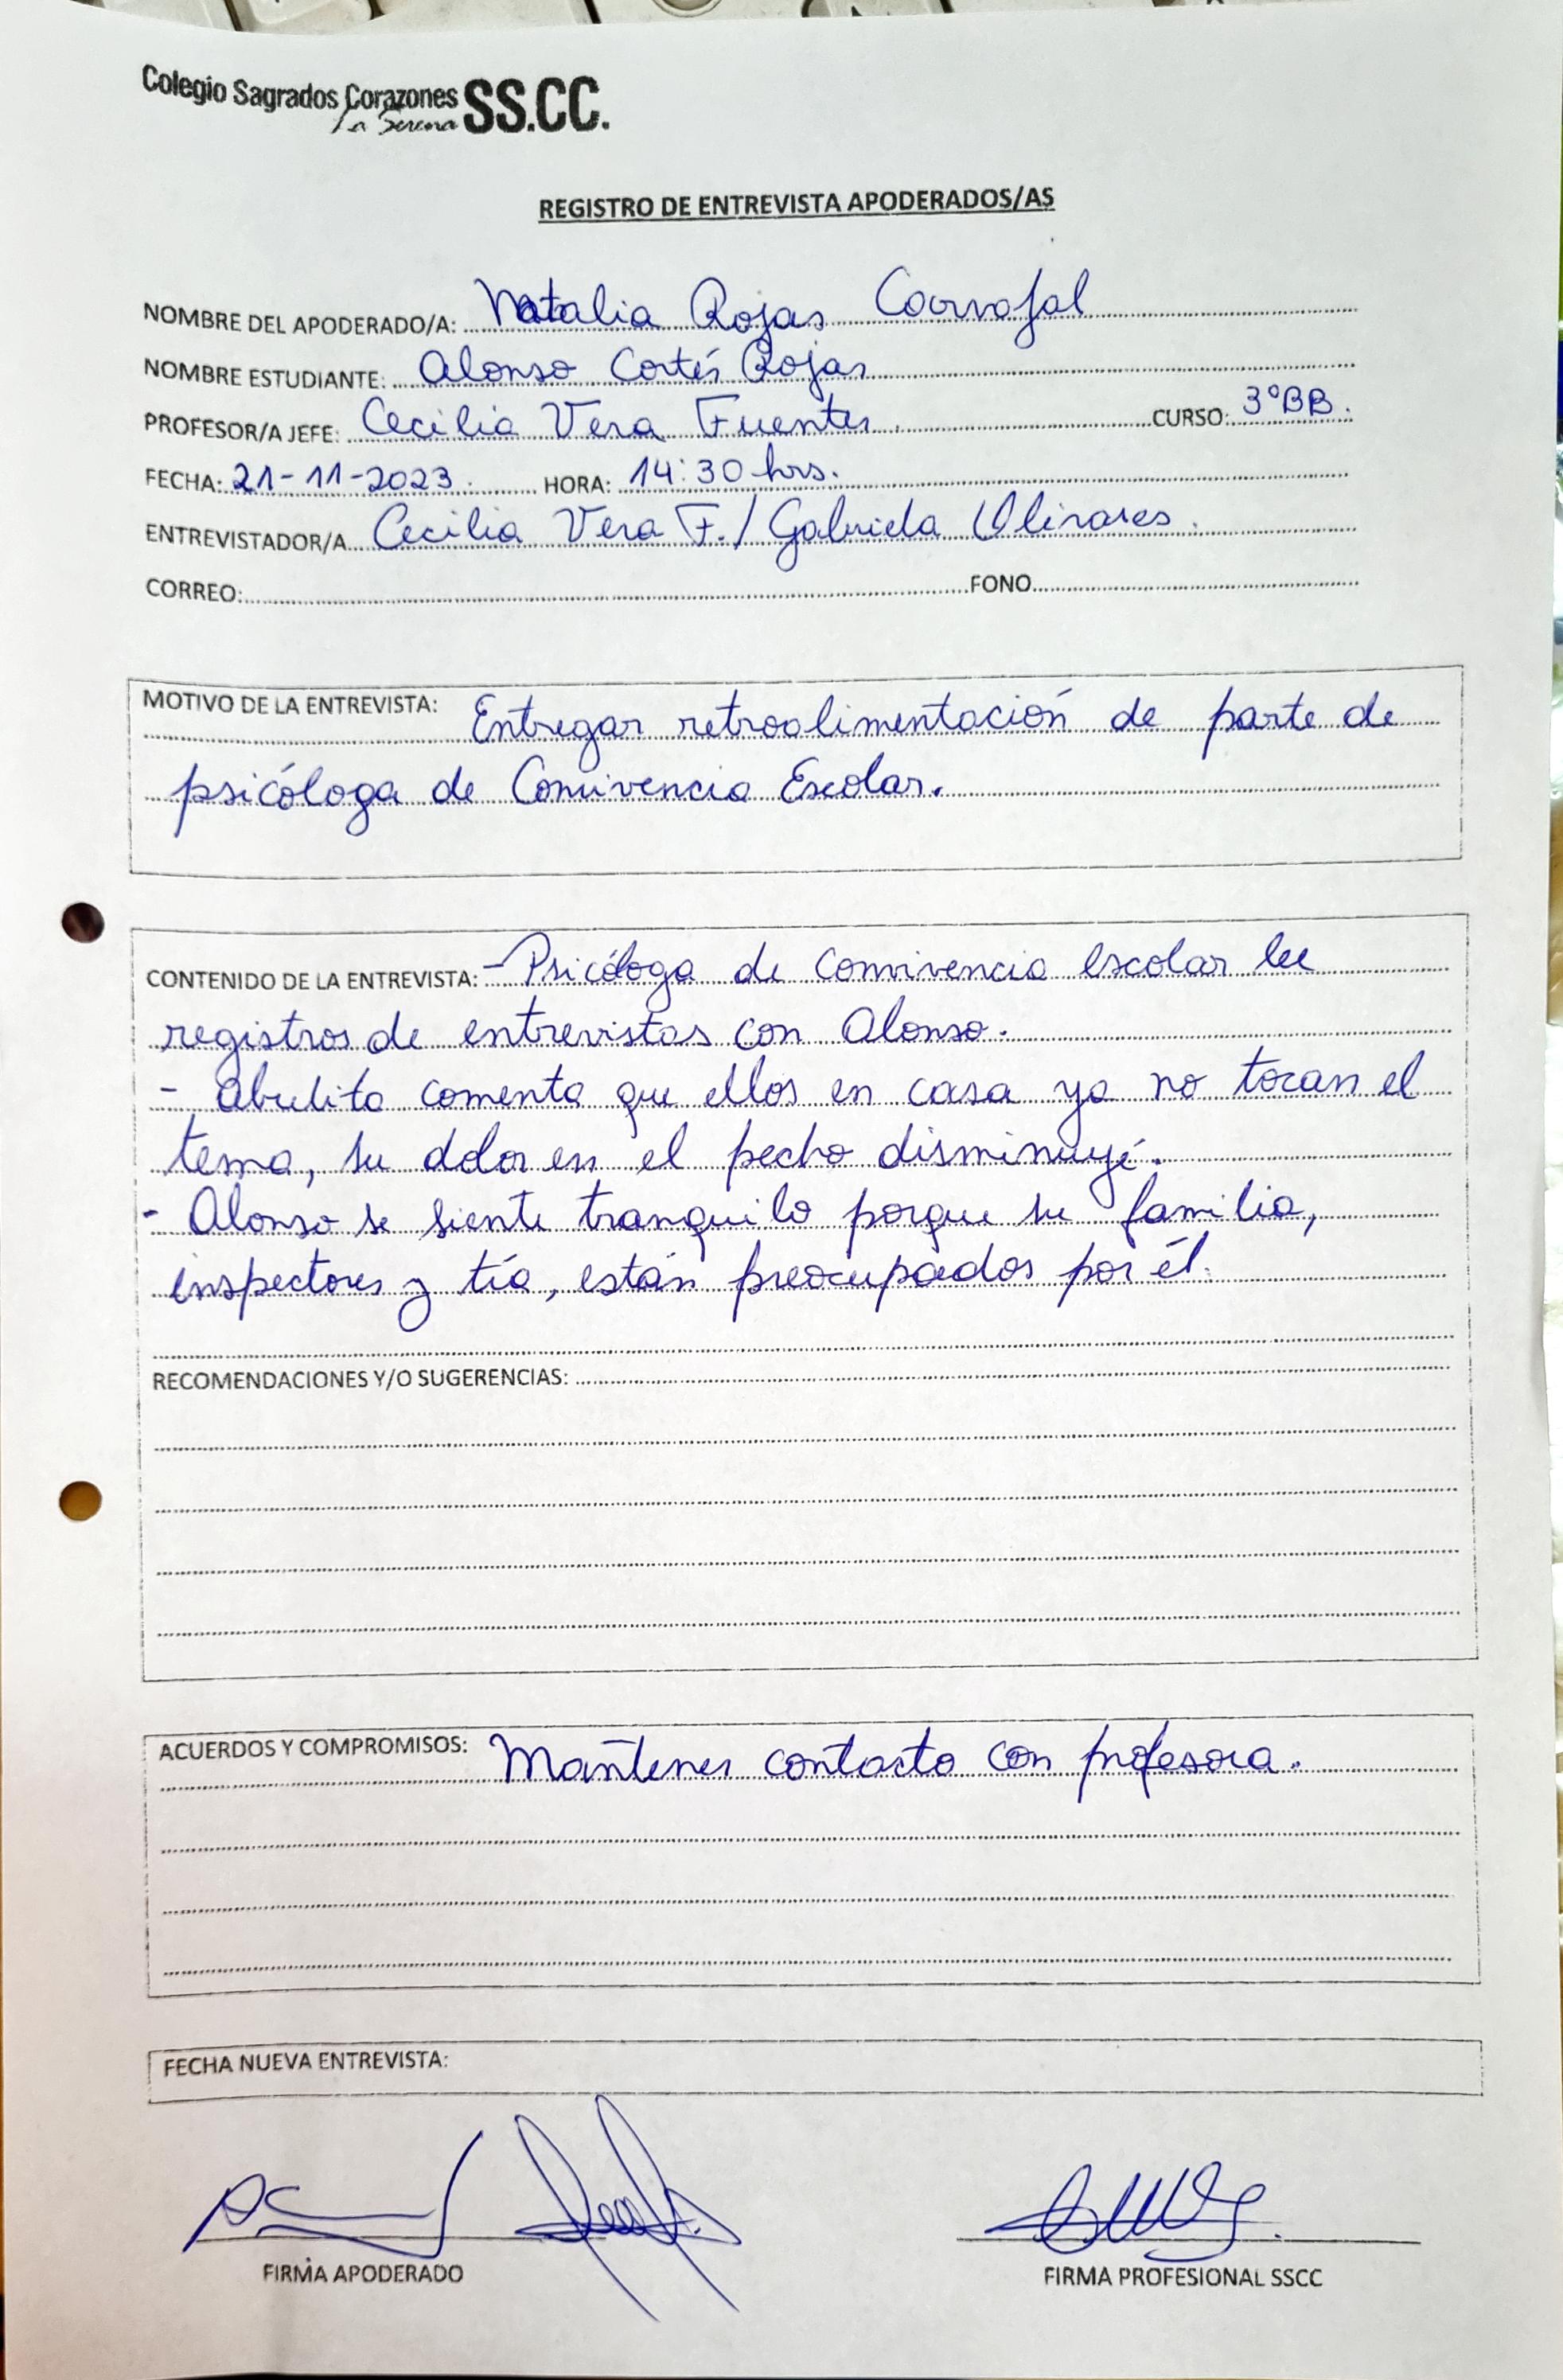 Colegio Sagrados Corazones SS.CC.
La Serena
REGISTRO DE ENTREVISTA APODERADOS/AS
NOMBRE DEL APODERADO/A: Natalia Rojas Carvajal
NOMBRE ESTUDIANTE: Alonso Cortés Rojas
PROFESOR/A JEFE: Cecilia Vera Fuentes. CURSO: 3ºBB.
FECHA: 21-11-2023. HORA: 14:30 hrs.
ENTREVISTADOR/A Cecilia Vera F./Gabriela Olivares.
CORREO: FONO
MOTIVO DE LA ENTREVISTA: Entregar retroalimentación de parte de
psicóloga de Convivencia Escolar.
CONTENIDO DE LA ENTREVISTA: - Psicóloga de Convivencia escolar lee
registros de entrevistas con Alonso.
- Abuelito comenta que ellos en casa ya no tocan el
tema, su dolor en el pecho disminuyó.
- Alonso se siente tranquilo porque su familia,
inspectores y tía, están preocupados por él.
RECOMENDACIONES Y/O SUGERENCIAS:
ACUERDOS Y COMPROMISOS: Mantener contacto con profesora.
FECHA NUEVA ENTREVISTA:
FIRMA APODERADO FIRMA PROFESIONAL SSCC